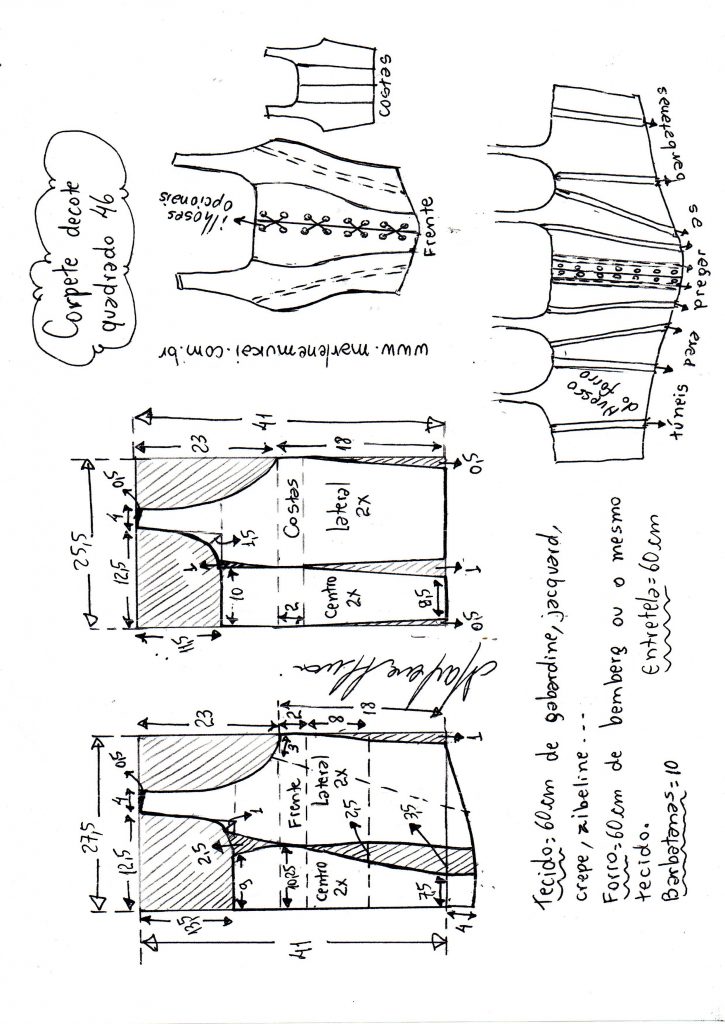 Corpete decote
quadrado 46
www.marlenemukai.com.br
ilhoses
opcionais
Frente
Costas
Avesso
do forro
túneis para pregar as barbatanas
25,5
12,5
4
0,5
23
18
41
11,5
1
1,5
10
2
Costas
Lateral
2x
Centro
2x
8,5
0,5
1
0,5
27,5
12,5
4
0,5
23
2
8
18
3
41
13,5
2,5
1
9
10,25
Frente
Lateral
2x
Centro
2x
2,5
3,5
7,5
4
1
Tecido=60cm de gabardine, jacquard,
crepe, zibeline...
Forro=60cm de bemberg ou o mesmo
tecido.
Entretela=60cm
Barbatanas=10